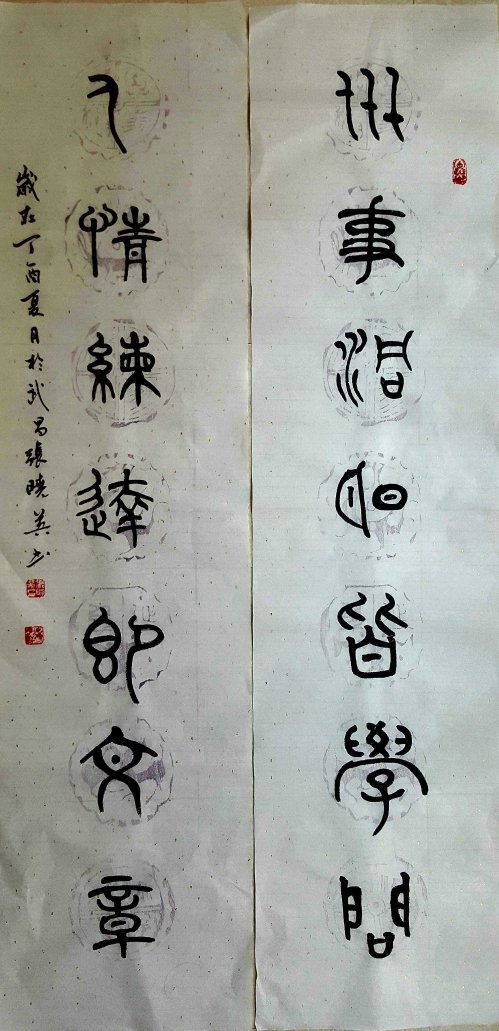 世事洞明皆學問
人情練達即文章
歲在丁酉夏月於武昌張曉英书